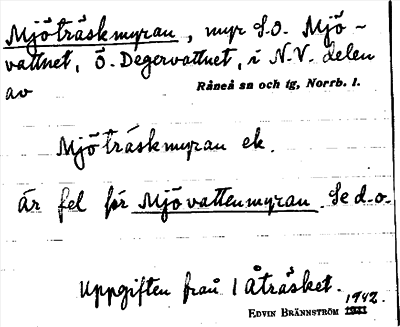 Mjöträskmyran, myr S.O. Mjö-
vattnet, Ö. Degervattnet, i N.V. delen
av
Råneå sn och tg, Norrb. l.
Mjöträskmyran ek.
är fel för Mjövattenmyran. Se d.o.
Uppgiften från 1 Åträsket.
1942.
EDVIN BRÄNNSTRÖM 1941